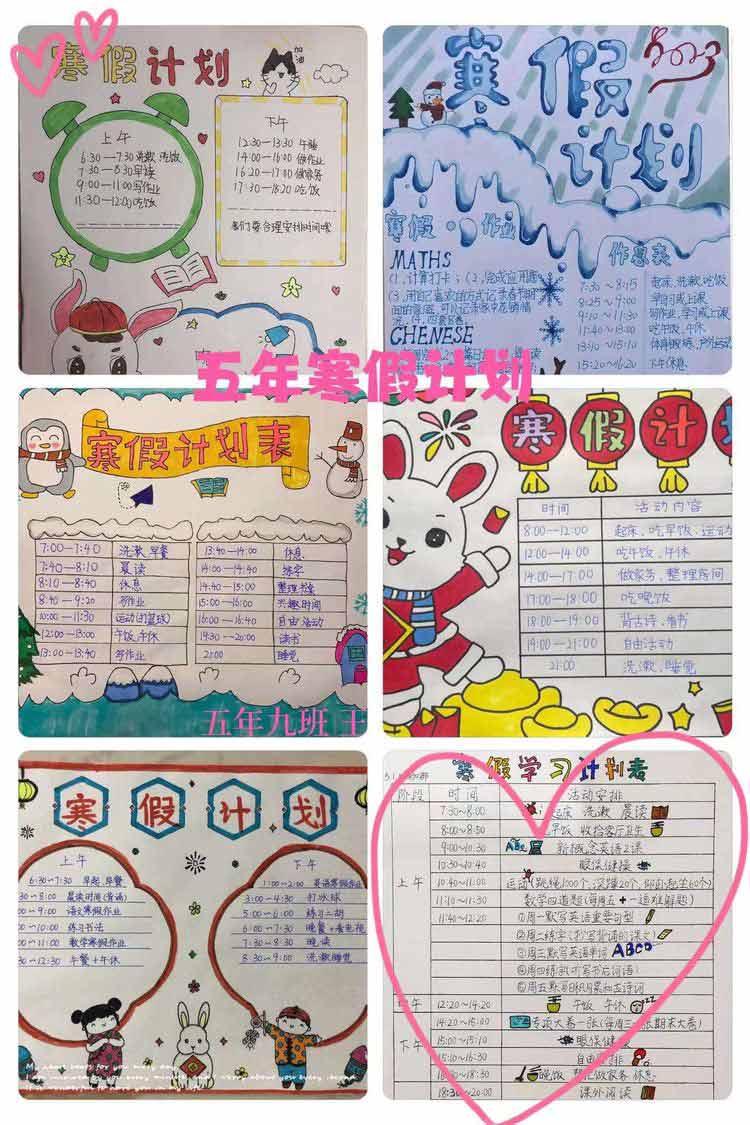 寒假计划
加油
上午
6:30—7:30 洗漱 吃饭
7:30—8:30 早读
9:00—11:00 写作业
11:30—12:00 吃饭
下午
12:30—13:30 午睡
14:00—16:00 做作业
16:20—17:00 做家务
17:30—18:20 吃饭
我们要合理安排时间哦
寒假计划
2023
寒假·作业
MATHS
CHENESE
作息表
7:30~8:15 起床,洗漱,吃饭
8:25~9:00 学习或上课
9:10~11:30 写作业,学习或上课
11:40~13:00 吃午饭,午休
13:10~15:10 体育锻炼,户外运动
15:20~16:20 下午休息
五年寒假计划
寒假计划表
7:00—7:40 洗漱 早餐
7:40—8:10 晨读
8:10—8:40 休息
8:40—9:20 写作业
10:00—11:30 运动(打篮球)
12:00—13:00 午饭,午休
13:00—13:40 写作业
13:40—14:00 休息
14:00—14:40 练字
14:40—15:00 整理书桌
15:00—16:00 兴趣时间
16:00—16:40 自由活动
19:30—20:00 读书
21:00 睡觉
五年九班 王
寒假计
时间 活动内容
8:00—12:00 起床、吃早饭、运动
12:00—14:00 吃午饭、午休
14:00—17:00 做家务、整理房间
17:00—18:00 吃晚饭
18:00—19:00 背古诗、看书
19:00—21:00 自由活动
21:00 洗漱、睡觉
寒假计划
上午
6:30~7:30 早起,早餐
~8:30 晨读时间(背诵)
~9:00 语文寒假作业
~10:00 练习书法
~11:00 数学寒假作业
~12:30 午餐+午休
下午
1:00~2:00 英语寒假作业
3:00~4:30 打冰球
5:00~6:00 练习二胡
6:00~7:00 晚餐+看电视
7:30~8:30 晚读
8:30~9:00 洗漱睡觉
寒假学习计划表
阶段 时间 活动安排
上午
7:30~8:00 起床 洗漱 晨读
8:00~8:50 早饭 收拾客厅卫生
9:00~10:30 ABC 新概念英语2课
10:30~10:40 眼保健操
10:40~11:00 运动(跳绳1000个,深蹲20个,仰卧起坐60个)
11:10~11:30 数学四道题(每周五+一道难解题)
11:40~12:20 ①周一默写英语重要句型
②周二练字(抄写背诵的课文)
③周三默写英语单词 ABCD
④周四练就听写书后词语
⑤周五默写日积月累和古诗词
中午 12:20~14:20 午饭 午休
下午
14:20~15:00 专项大卷一张(每周三一张期末大卷)
15:00~15:10 眼保健操
15:10~16:30 自由安排
16:30~18:30 晚饭 帮忙做家务 休息
18:30~20:00 课外阅读